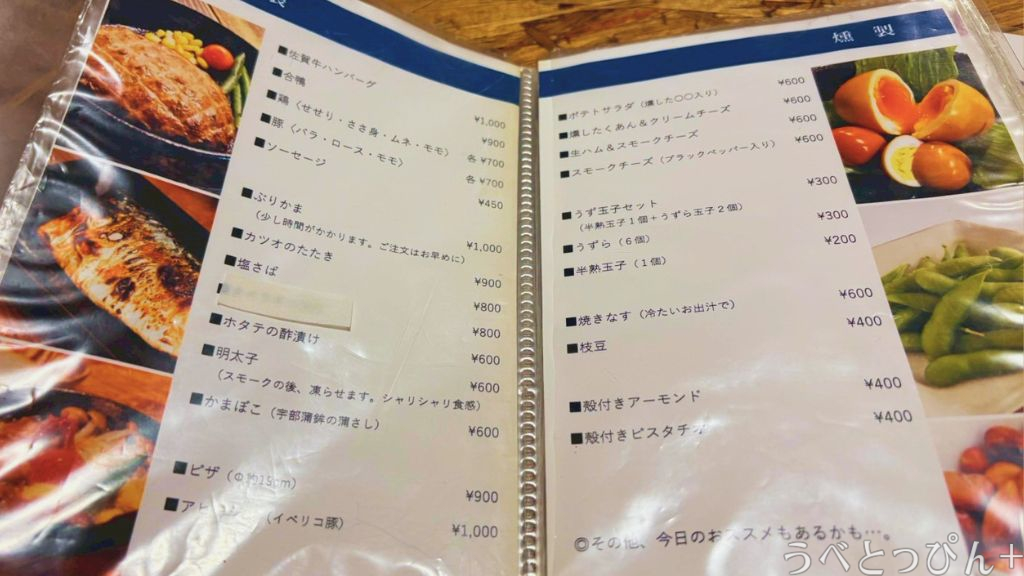 製
■佐賀牛ハンバーグ ¥1,000
■合鴨 ¥900
■鶏（せせり・ささ身・ムネ・モモ） 各 ¥700
■豚（バラ・ロース・モモ） 各 ¥700
■ソーセージ ¥450
■ぶりかま ¥1,000
（少し時間がかかります。ご注文はお早めに）
■カツオのたたき ¥900
■塩さば ¥800
¥800
■ホタテの酢漬け ¥600
■明太子 ¥600
（スモークの後、凍らせます。シャリシャリ食感）
■かまぼこ（宇部蒲鉾の蒲さし） ¥600
■ピザ（Φ約19cm） ¥900
■アヒージョ（イベリコ豚） ¥1,000
燻 製
■ポテトサラダ（燻した〇〇入り） ¥600
■燻したくあん＆クリームチーズ ¥600
■生ハム＆スモークチーズ ¥600
■スモークチーズ（ブラックペッパー入り） ¥600
■うず玉子セット ¥300
（半熟玉子１個＋うずら玉子２個）
■うずら（６個） ¥300
■半熟玉子（１個） ¥200
■焼きなす（冷たいお出汁で） ¥600
■枝豆 ¥400
■殻付きアーモンド ¥400
■殻付きピスタチオ ¥400
◎その他、今日のおススメもあるかも…。
うべとっぴん＋